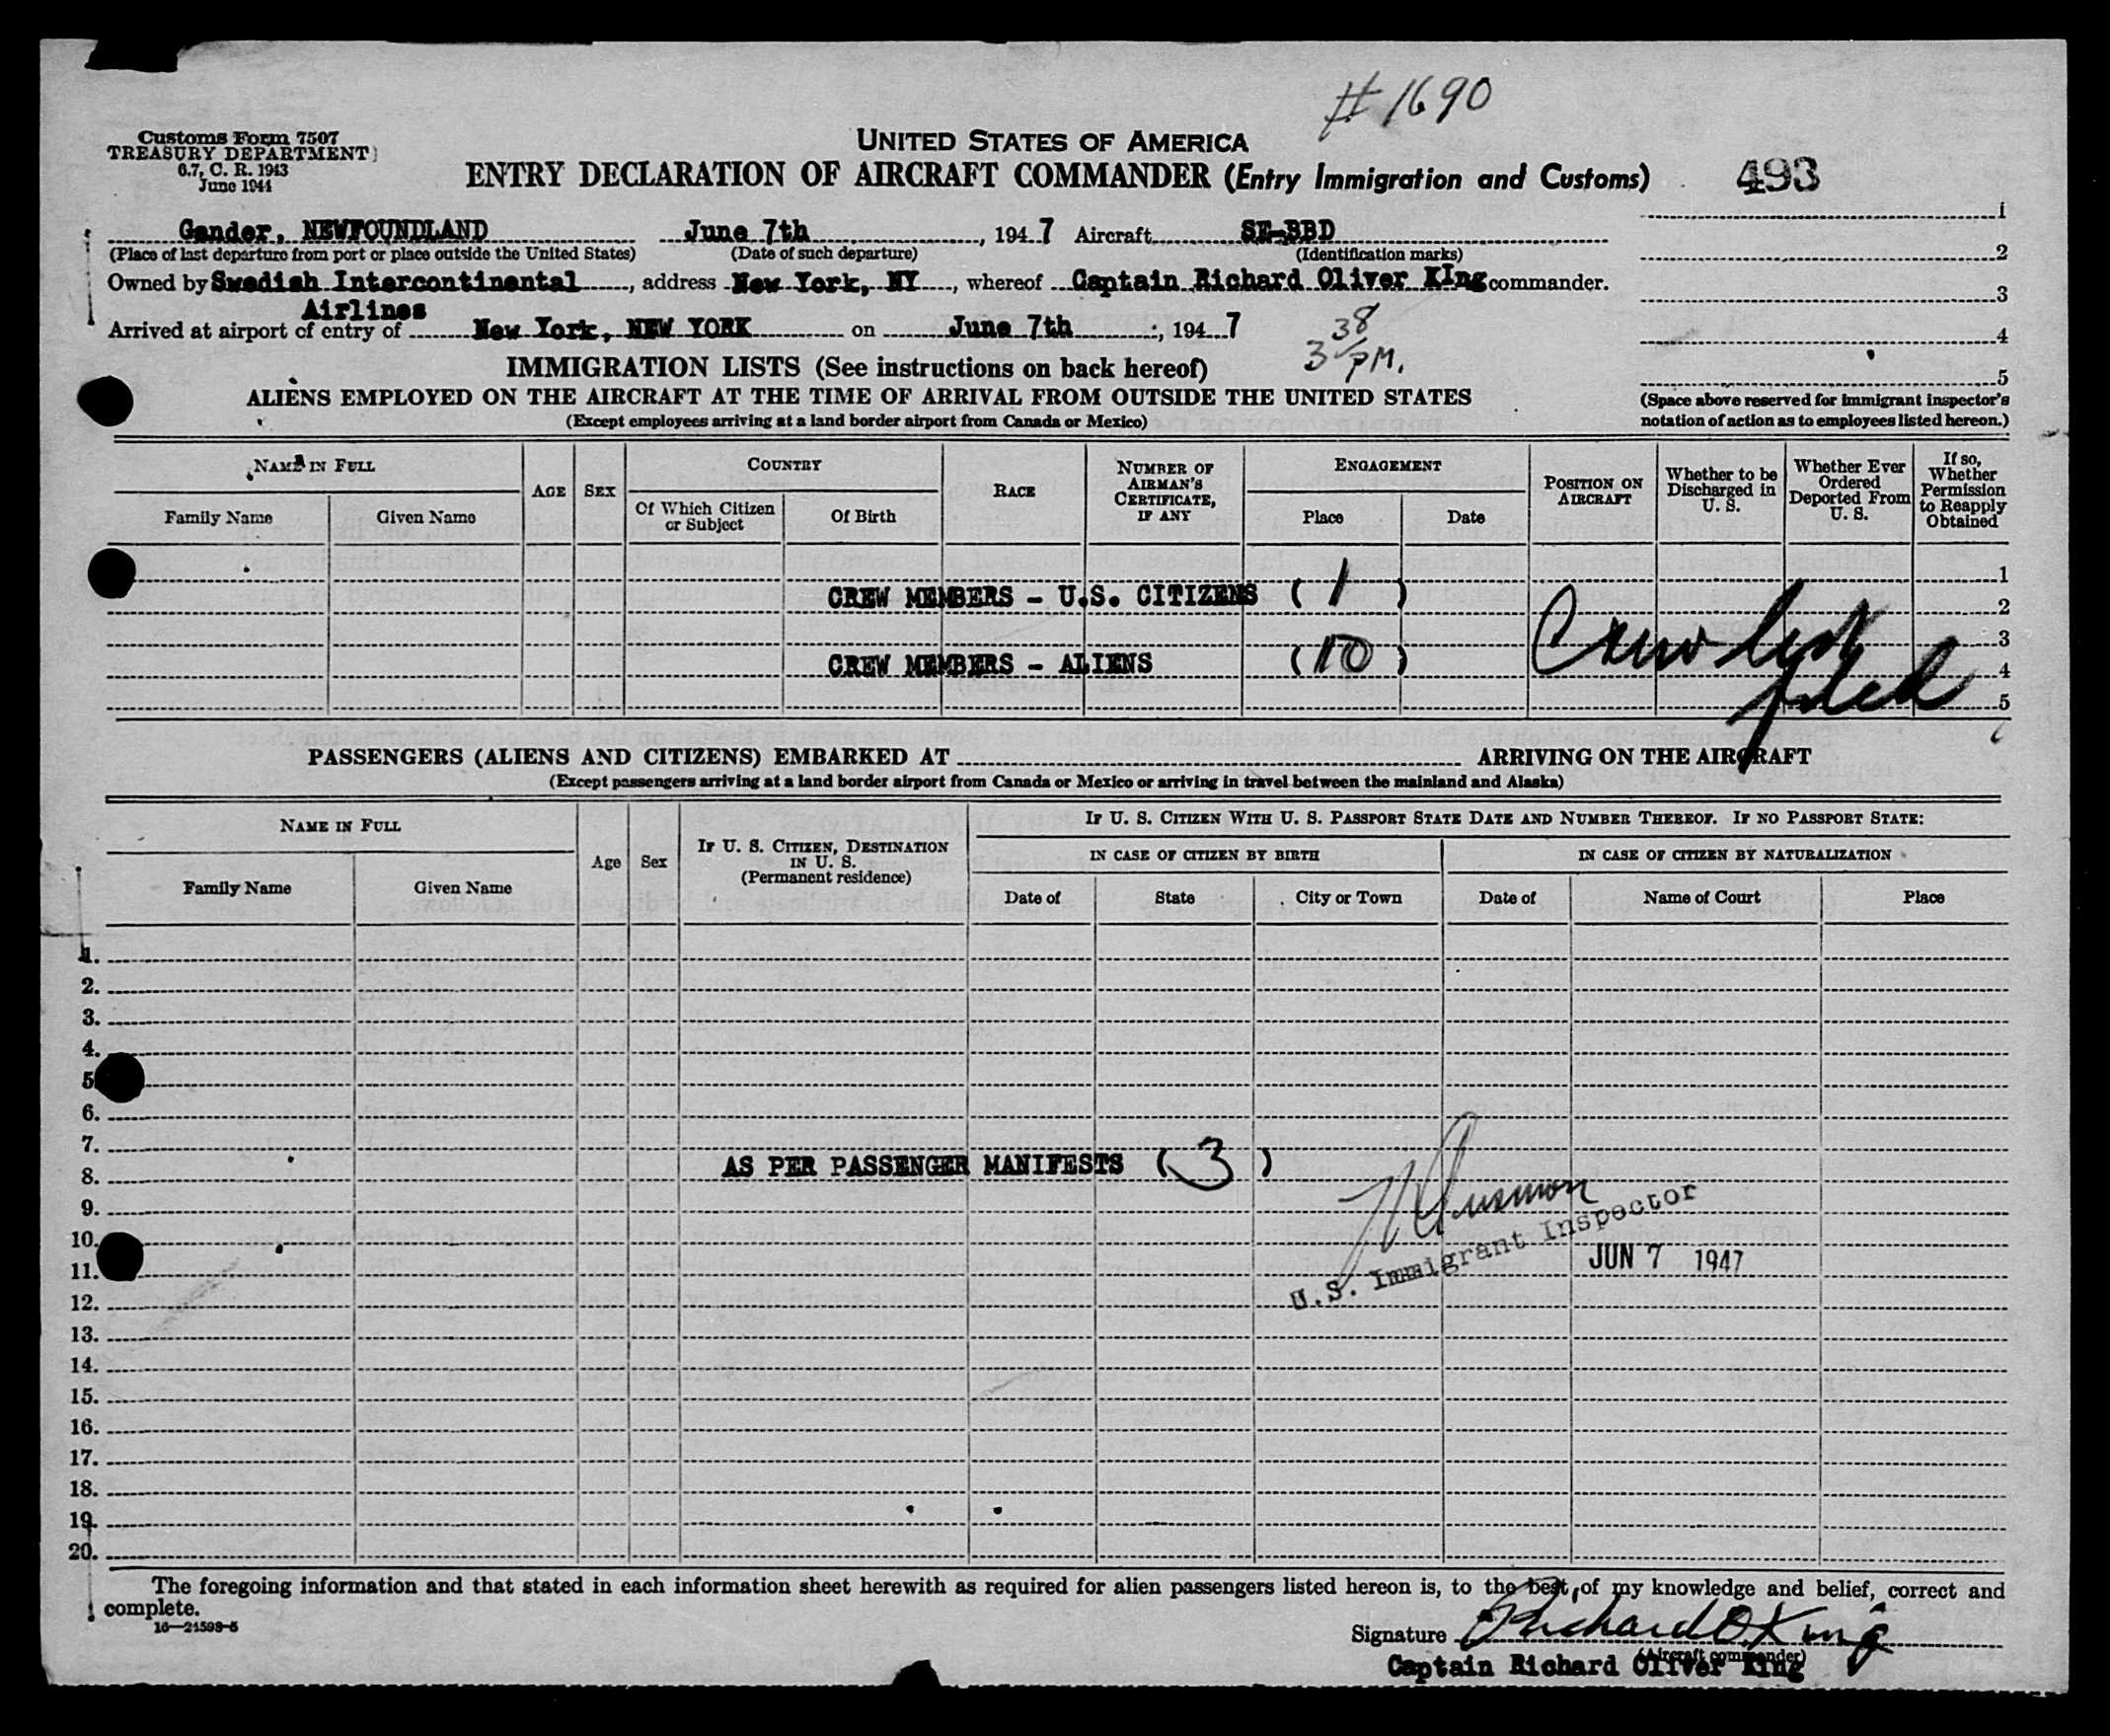 # 1690
Customs Form 7507
TREASURY DEPARTMENT
6.7, C. R. 1943
June 1944
UNITED STATES OF AMERICA
ENTRY DECLARATION OF AIRCRAFT COMMANDER (Entry Immigration and Customs)
493
Gander, NEWFOUNDLAND June 7th, 1947 Aircraft SE-BBD
(Place of last departure from port or place outside the United States) (Date of such departure) (Identification marks)
Owned by Swedish Intercontinental, address New York, NY, whereof Captain Richard Oliver KIng commander.
Airlines
Arrived at airport of entry of New York, NEW YORK on June 7th, 1947
3 38 PM.
1
2
3
4
5
(Space above reserved for immigrant inspector's
notation of action as to employees listed hereon.)
IMMIGRATION LISTS (See instructions on back hereof)
ALIENS EMPLOYED ON THE AIRCRAFT AT THE TIME OF ARRIVAL FROM OUTSIDE THE UNITED STATES
(Except employees arriving at a land border airport from Canada or Mexico)
NAME IN FULL
Family Name
Given Name
AGE
SEX
COUNTRY
Of Which Citizen
or Subject
Of Birth
RACE
NUMBER OF
AIRMAN'S
CERTIFICATE,
IF ANY
ENGAGEMENT
Place
Date
POSITION ON
AIRCRAFT
Whether to be
Discharged in
U. S.
Whether Ever
Ordered
Deported From
U. S.
If so,
Whether
Permission
to Reapply
Obtained
1
CREW MEMBERS - U.S. CITIZENS ( 1 )
2
3
CREW MEMBERS - ALIENS ( 10 )
4
5
Crew list
filed
PASSENGERS (ALIENS AND CITIZENS) EMBARKED AT ARRIVING ON THE AIRCRAFT
(Except passengers arriving at a land border airport from Canada or Mexico or arriving in travel between the mainland and Alaska)
NAME IN FULL
Family Name
Given Name
Age
Sex
IF U. S. CITIZEN, DESTINATION
IN U. S.
(Permanent residence)
IF U. S. CITIZEN WITH U. S. PASSPORT STATE DATE AND NUMBER THEREOF. IF NO PASSPORT STATE:
IN CASE OF CITIZEN BY BIRTH
IN CASE OF CITIZEN BY NATURALIZATION
Date of
State
City or Town
Date of
Name of Court
Place
1.
2.
3.
4.
5.
6.
7.
AS PER PASSENGER MANIFESTS ( 3 )
8.
9.
10.
11.
U.S. Immigrant Inspector
JUN 7 1947
12.
13.
14.
15.
16.
17.
18.
19.
20.
The foregoing information and that stated in each information sheet herewith as required for alien passengers listed hereon is, to the best of my knowledge and belief, correct and
complete.
16—21598-5
Signature Richard O. King
(Aircraft commander)
Captain Richard Oliver King